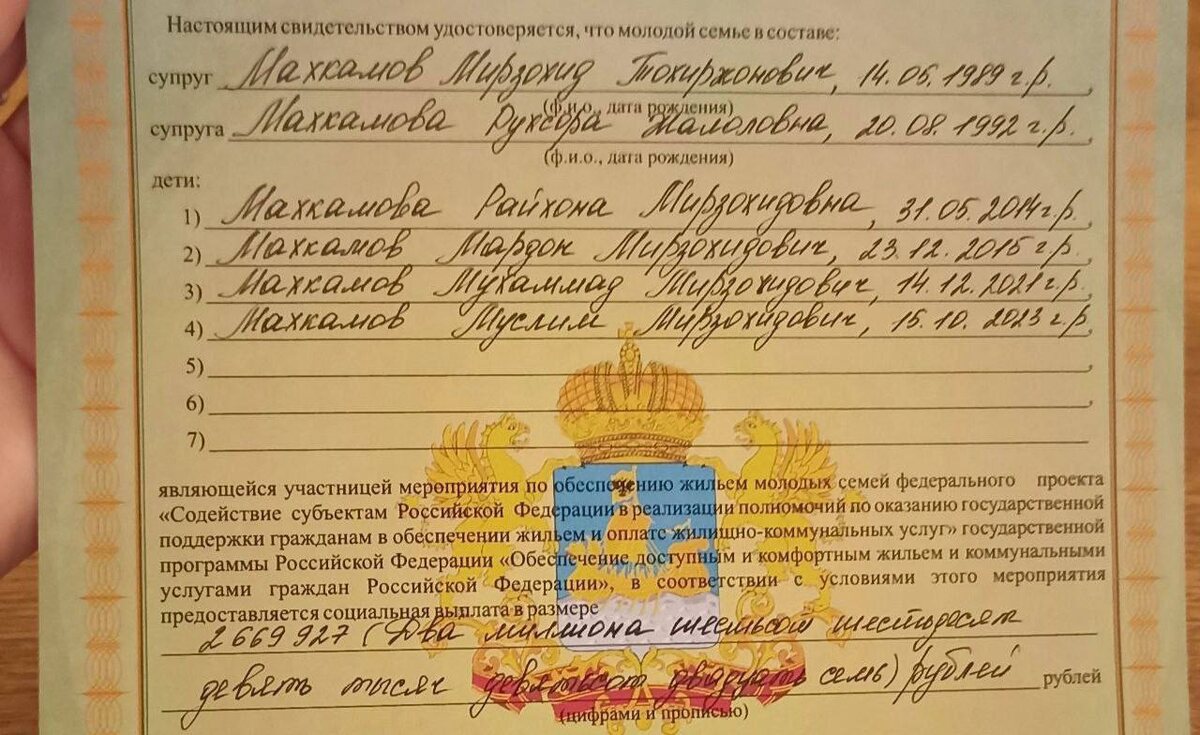 Настоящим свидетельством удостоверяется, что молодой семье в составе:
супруг Махкамов Мирзохид Тохиржонович, 14.05.1989 г.р.,
(ф.и.о., дата рождения)
супруга Махкамова Рухсора Жамоловна, 20.08.1992 г.р.,
(ф.и.о., дата рождения)
дети:
1) Махкамова Райхона Мирзохидовна, 31.05.2014 г.р.,
2) Махкамов Мардон Мирзохидович, 23.12.2015 г.р.,
3) Махкамов Мухаммад Мирзохидович, 14.12.2021 г.р.,
4) Махкамов Муслим Мирзохидович, 15.10.2023 г.р.,
5) ,
6) ,
7)
являющейся участницей мероприятия по обеспечению жильем молодых семей федерального проекта
«Содействие субъектам Российской Федерации в реализации полномочий по оказанию государственной
поддержки гражданам в обеспечении жильем и оплате жилищно-коммунальных услуг» государственной
программы Российской Федерации «Обеспечение доступным и комфортным жильем и коммунальными
услугами граждан Российской Федерации», в соответствии с условиями этого мероприятия
предоставляется социальная выплата в размере
2 669 927 (Два миллиона шестьсот шестьдесят
девять тысяч девятьсот двадцать семь) рублей рублей
(цифрами и прописью)